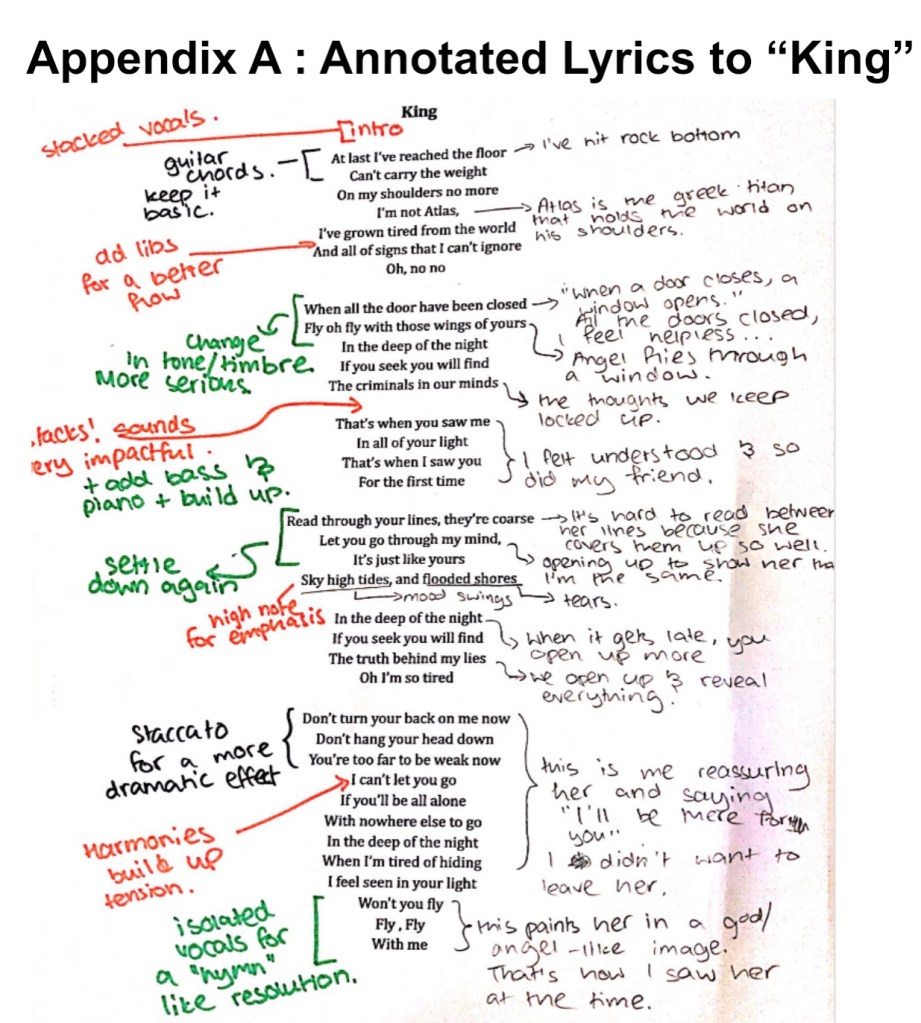 Appendix A : Annotated Lyrics to “King”
King
stacked vocals.
[intro
guitar chords.
keep it basic.
At last I've reached the floor
→ I've hit rock bottom
Can't carry the weight
On my shoulders no more
I'm not Atlas,
→ Atlas is the greek titan
that holds the world on
his shoulders.
I've grown tired from the world
ad libs
for a better
flow
And all of signs that I can't ignore
Oh, no no
When all the door have been closed
→ "when a door closes, a
window opens."
All the doors closed,
I feel helpless...
Fly oh fly with those wings of yours
→ Angel flies through
a window.
change
in tone/timbre.
More serious
In the deep of the night
If you seek you will find
The criminals in our minds
the thoughts we keep
locked up.
.tacks! sounds
ery impactful.
+ add bass &
piano + build up.
That's when you saw me
In all of your light
That's when I saw you
For the first time
I felt understood & so
did my friend.
Read through your lines, they're coarse
→ It's hard to read between
her lines because she
covers them up so well.
Let you go through my mind,
It's just like yours
opening up to show her tha
I'm the same.
settle
down again
Sky high tides, and flooded shores
→ mood swings → tears.
high note
for emphasis
In the deep of the night
If you seek you will find
→ when it gets late, you
open up more
The truth behind my lies
→ we open up & reveal
everything!
Oh I'm so tired
staccato
for a more
dramatic effect
Don't turn your back on me now
Don't hang your head down
You're too far to be weak now
I can't let you go
If you'll be all alone
With nowhere else to go
In the deep of the night
When I'm tired of hiding
I feel seen in your light
this is me reassuring
her and saying
"I'll be there for
you"
I didn't want to
leave her.
Harmonies
build up
tension.
isolated
vocals for
a "hymn"
like resolution.
Won't you fly
Fly, Fly
With me
this paints her in a god/
angel-like image.
That's how I saw her
at the time.